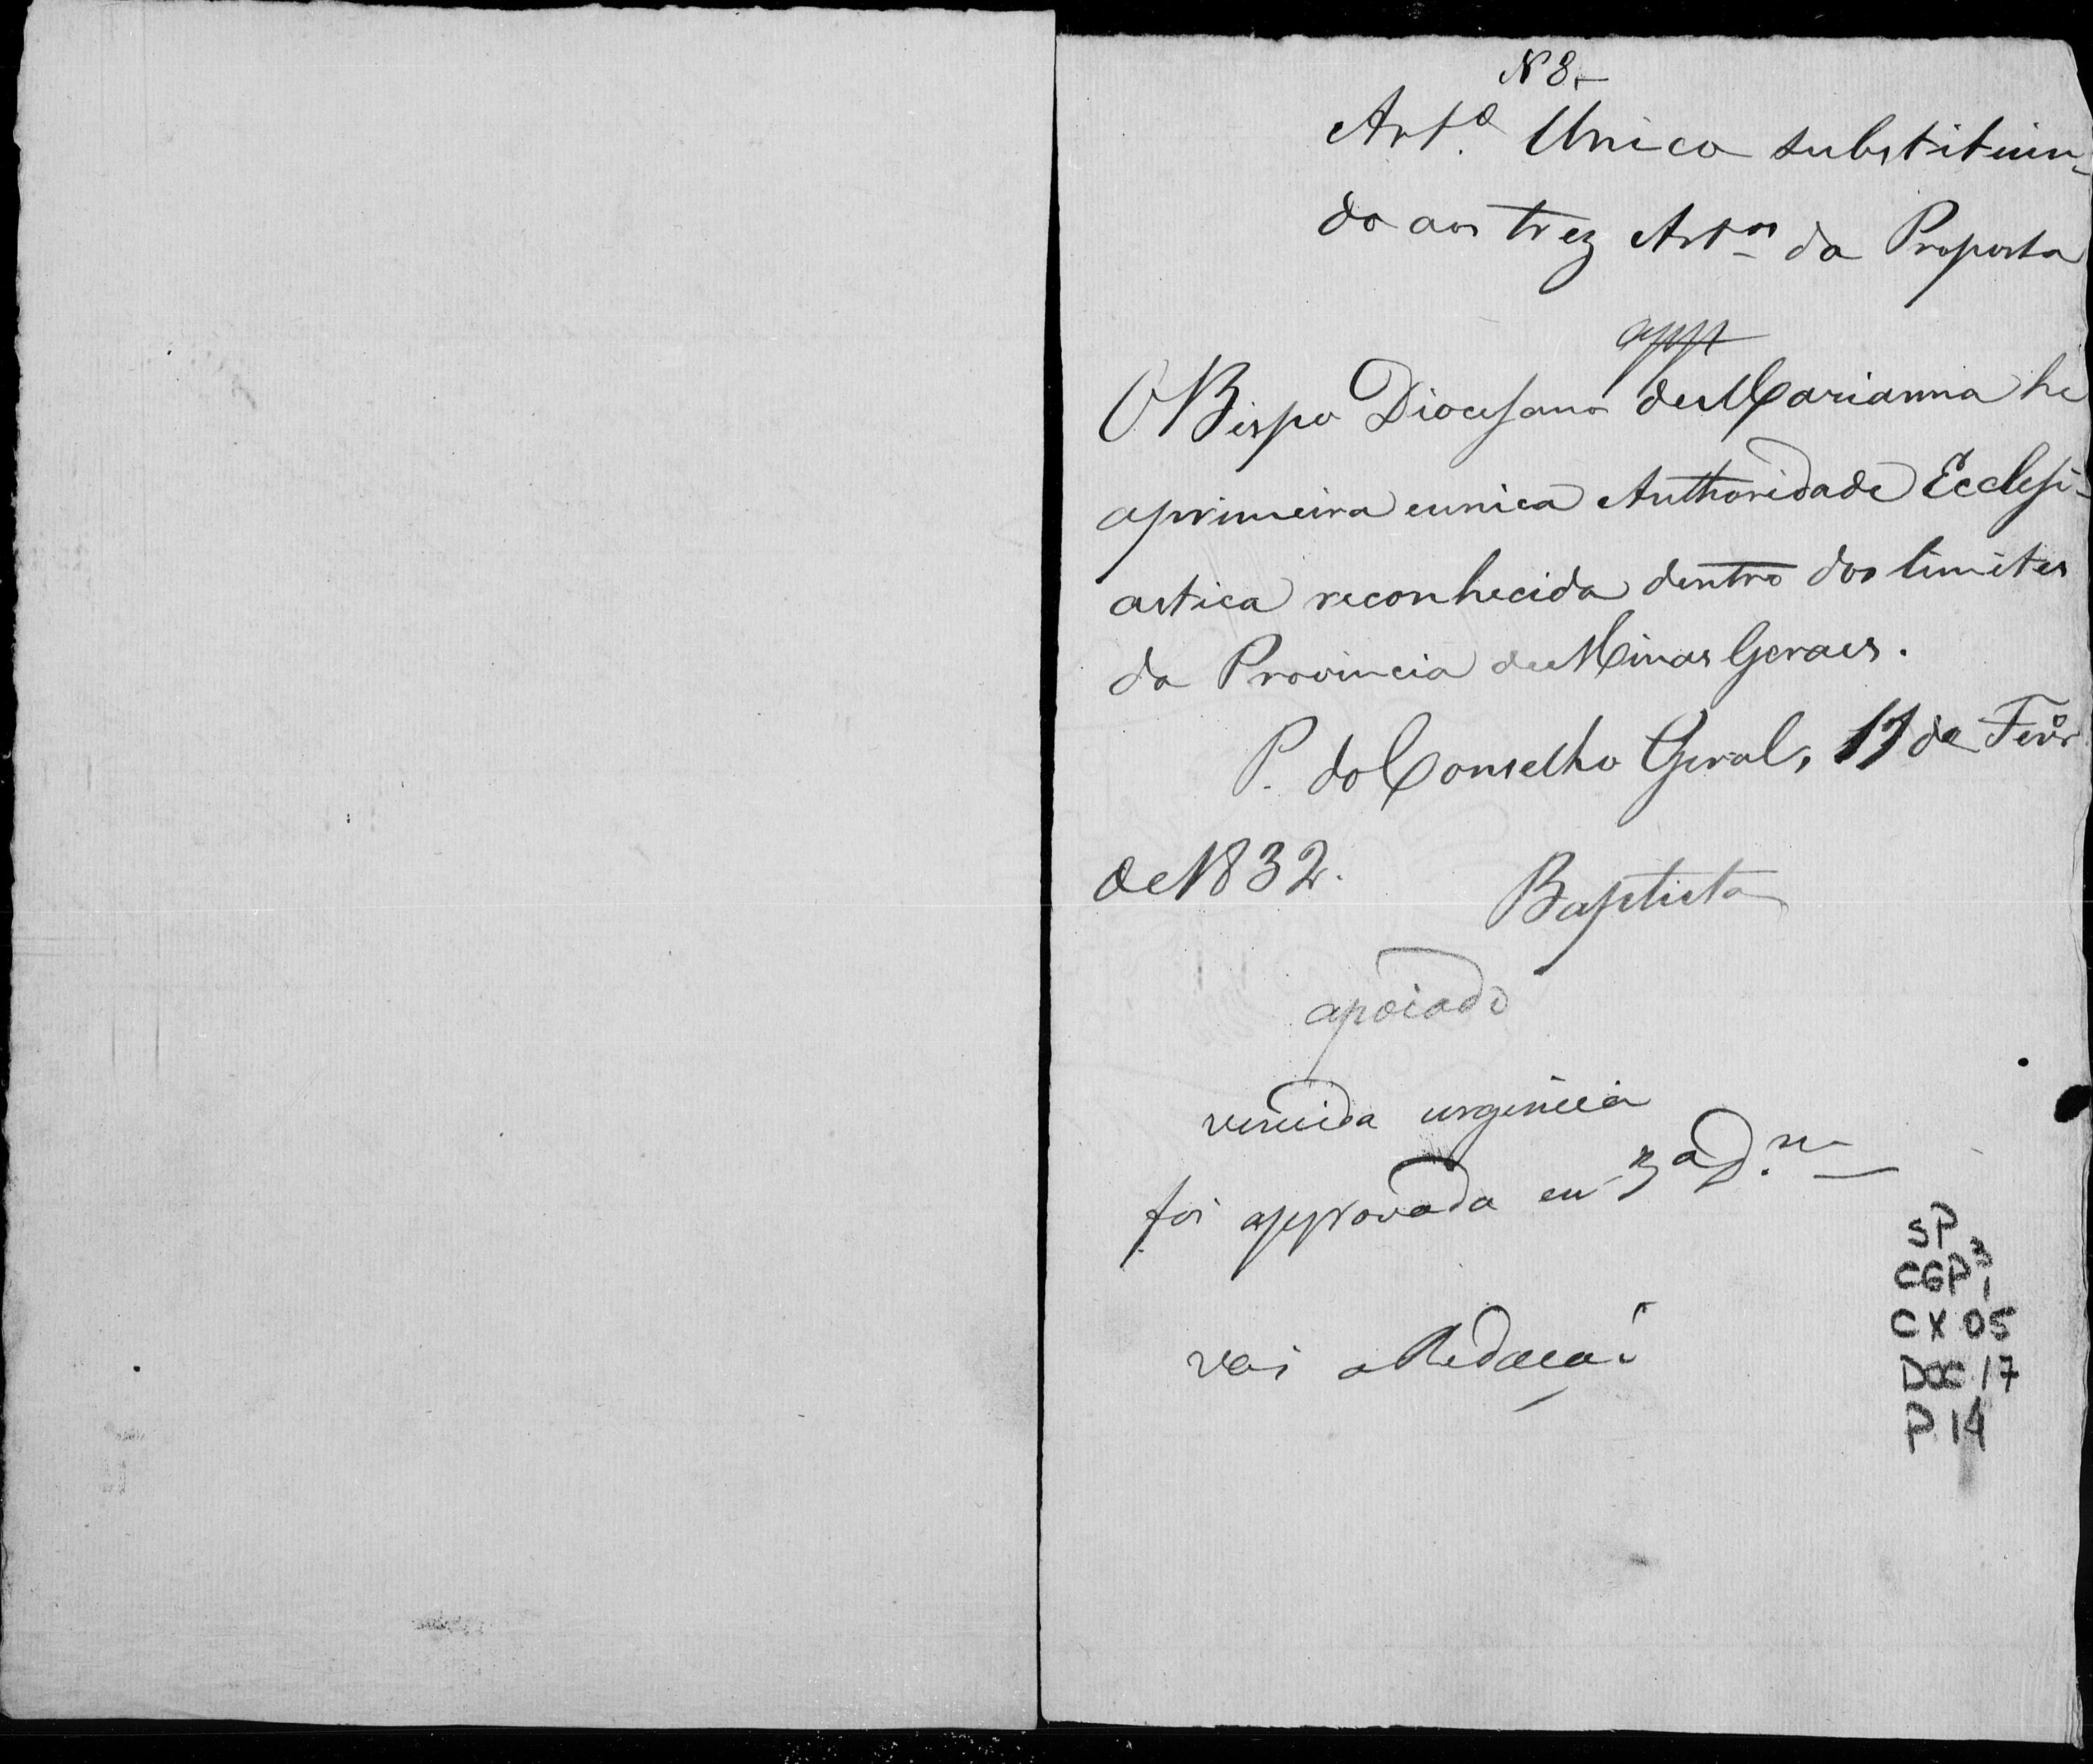 N 8.
Art.º Unico substituin-
do aos trez Artos da Proposta
app
O Bispo Diocesano de Marianna he
aprimeira eunica Authoridade Ecclesi-
astica reconhecida dentro dos limites
da Provincia de Minas Geraes.
P. do Conselho Geral, 17 de Fevrº
de 1832.
Baptista
apoiado
vencida urgencia
foi approvada em 3ª D.m
vai a Redacaõ
SP
CGP³1
CX 05
Doc 17
P 14